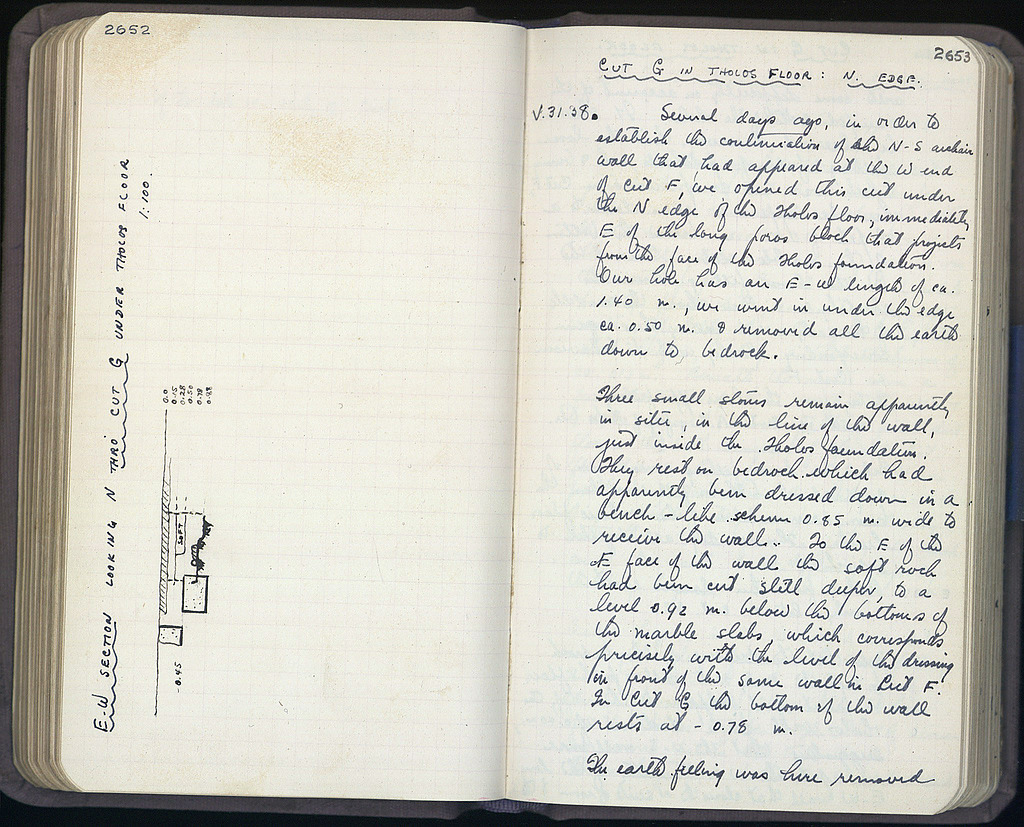 2652
E-W SECTION LOOKING N THRO CUT G UNDER THOLOS FLOOR
1:100.
0.0
0.15
0.28
0.50
0.78
SOFT
-0.45
2653
CUT G IN THOLOS FLOOR: N. EDGE.
V.31.38. Several days ago, in order to
establish the continuation of the N-S archaic
wall that had appeared at the W end
of cut F, we opened this cut under
the N edge of the Tholos floor, immediately
E of the long poros block that projects
from the face of the Tholos foundation.
Our hole has an E-W length of ca.
1.40 m., we went in under the edge
ca. 0.50 m. & removed all the earth
down to bedrock.
Three small stones remain apparently
in situ, in the line of the wall,
just inside the Tholos foundation.
They rest on bedrock which had
apparently been dressed down in a
bench-like scheme 0.85 m. wide to
receive the wall. To the E of the
E face of the wall the soft rock
had been cut still deeper, to a
level 0.92 m. below the bottoms of
the marble slabs, which corresponds
precisely with the level of the dressing
in front of the same wall in Cut F.
In Cut G the bottom of the wall
rests at - 0.78 m.
The earth filling was here removed